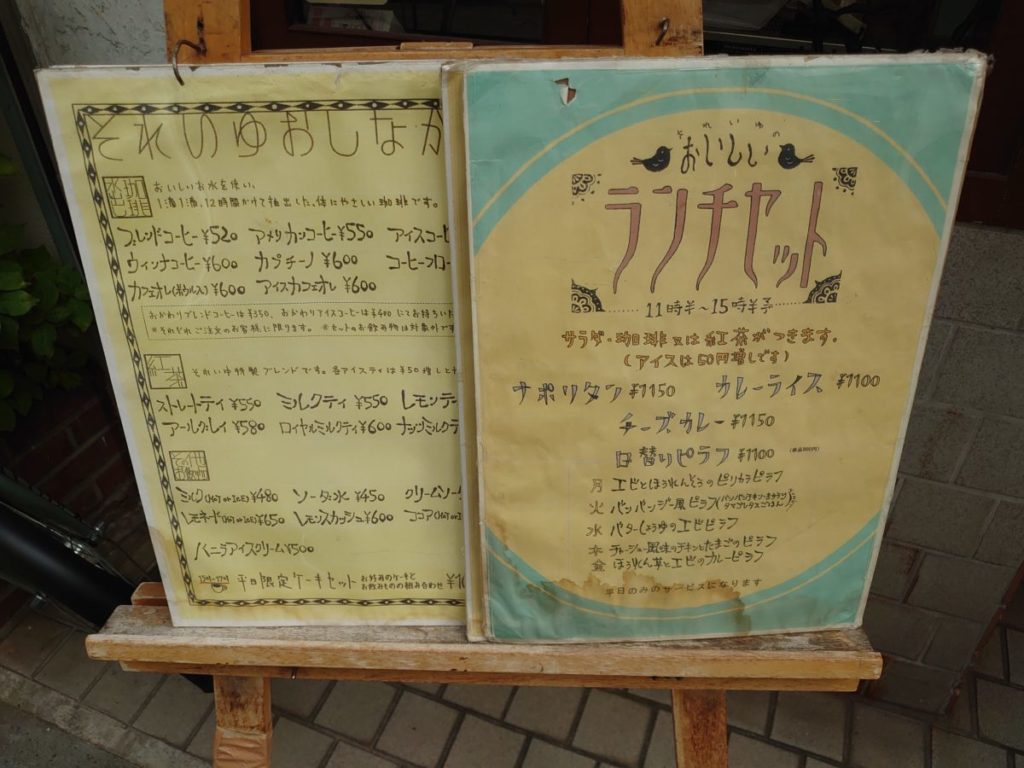 それいゆおしなが
珈琲
おいしいお水を使い、
1滴1滴、12時間かけて抽出した、体にやさしい珈琲です。
ブレンドコーヒー¥520 アメリカンコーヒー¥550 アイスコーヒ
ウィンナコーヒー¥600 カプチーノ¥600 コーヒーフロー
カフェオレ(ホットorアイス)¥600 アイスカフェオレ¥600
おかわりブレンドコーヒーは¥350、おかわりアイスコーヒーは¥400にてお持ちいた
※それぞれご注文のお客様に限ります。※セットのお飲み物は対象外です
紅茶
それいゆ特製ブレンドです。各アイスティは¥50増しとな
ストレートティ¥550 ミルクティ¥550 レモンテ
アールグレイ¥580 ロイヤルミルクティ¥600 ナッツミルクティ
その他お飲物
ミルク(HOT or ICE)¥480 ソーダ水¥450 クリームソー
レモネード(HOT or ICE)¥650 レモンスカッシュ¥600 ココア(HOT or
バニラアイスクリーム¥500
平日限定ケーキセット お好みのケーキと
お飲みものの組み合わせ ¥10
それいゆの
おいしい
ランチセット
11時半~15時半予
サラダ・珈琲又は紅茶がつきます。
(アイスは50円増しです)
ナポリタン¥1150 カレーライス¥1100
チーズカレー¥1150
日替りピラフ¥1100
月 エビとほうれんそうのピリカラピラフ
火 バンバンジー風ピラフ
水 バターしょうゆのエビピラフ
木 チャーシュー風味のチキンとたまごのピラフ
金 ほうれん草とエビのカレーピラフ
平日のみのサービスになります